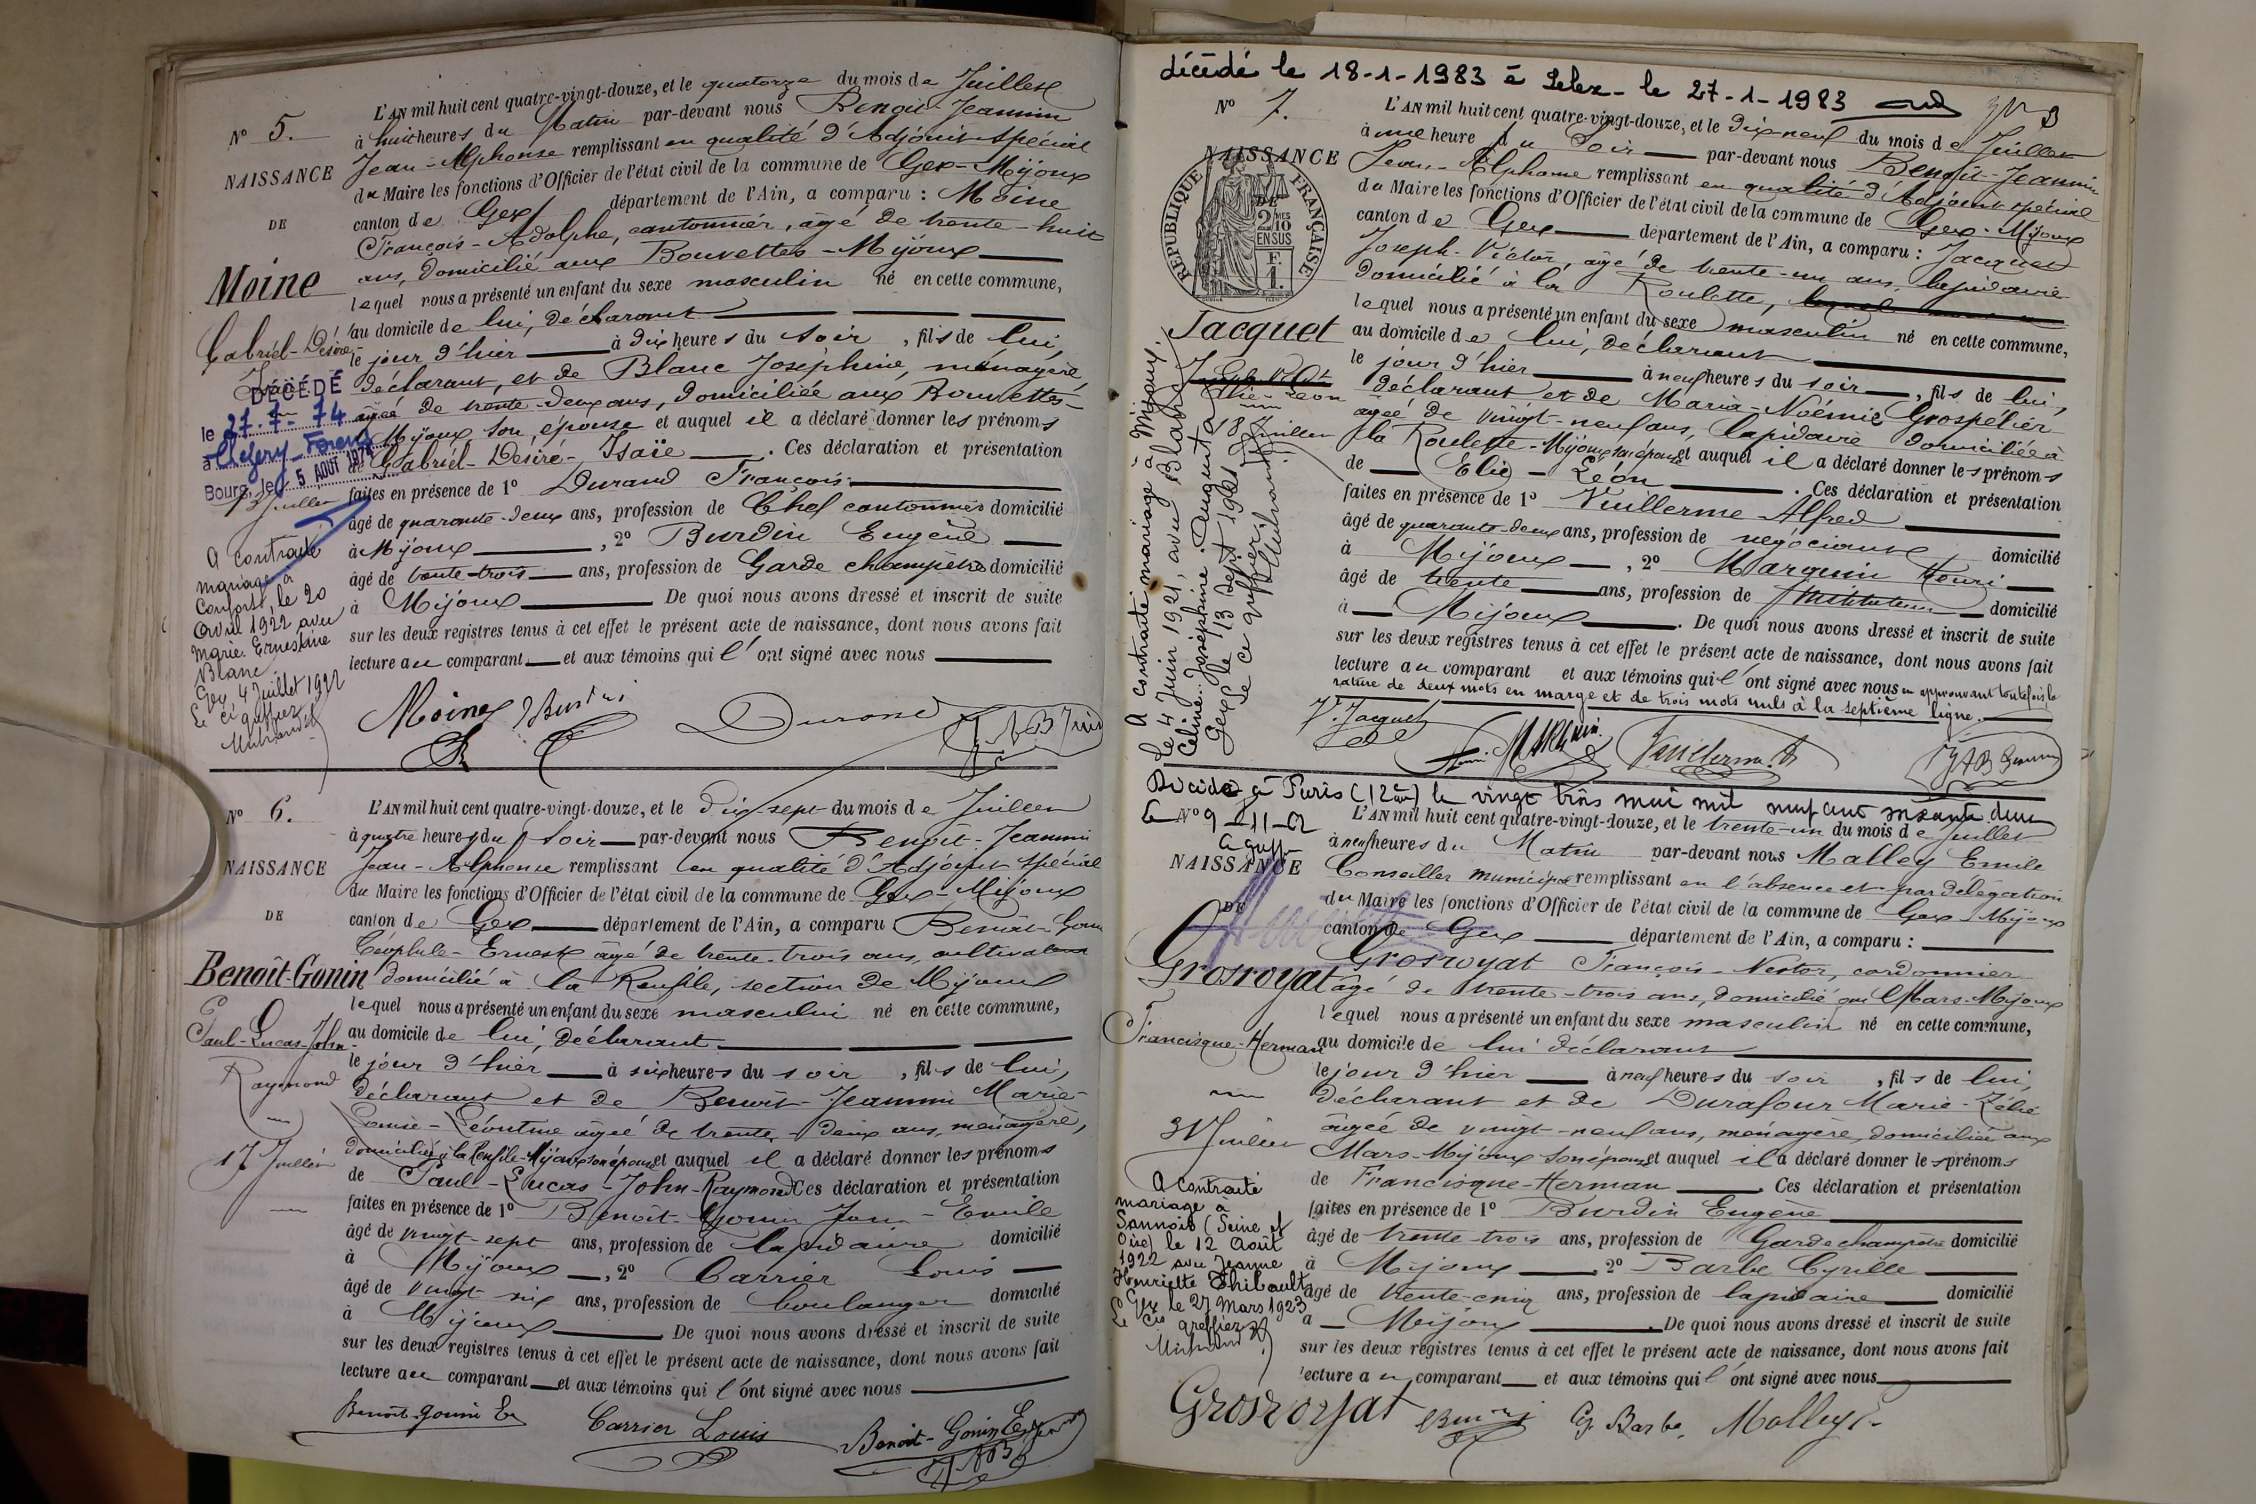 N° 5.
NAISSANCE
DE
Moine
Gabriel-Désiré-
Isaïe
DÉCÉDÉ
le 27.7-74
à Chézery-Forens
Bourg, le 5 AOUT 1974
13 Juillet
A contracté
mariage à
Confort, le 20
avril 1922 avec
Marie Ernestine
Blanc
Gex 4 Juillet 1922
Le Cis greffier
L'AN mil huit cent quatre-vingt-douze, et le quatorze du mois de Juillet
à huit heures du Matin par-devant nous Benoit-Jeannin
Jean-Alphonse remplissant en qualité d'Adjoint spécial
du Maire les fonctions d'Officier de l'état civil de la commune de Gex-Mijoux
canton de Gex département de l'Ain, a comparu : Moine
François-Adolphe, cantonnier, âgé de trente-huit
ans, domicilié aux Bouvettes-Mijoux
lequel nous a présenté un enfant du sexe masculin né en cette commune,
au domicile de lui, déclarant
le jour d'hier à dix heures du soir, fils de lui,
déclarant, et de Blanc Joséphine, ménagère,
âgée de trente-deux ans, domiciliée aux Bouvettes-
Mijoux son épouse et auquel il a déclaré donner les prénoms
de Gabriel-Désiré-Isaïe. Ces déclaration et présentation
faites en présence de 1° Durand François
âgé de quarante-deux ans, profession de Chef cantonnier domicilié
à Mijoux, 2° Burdin Eugène
âgé de trente-trois ans, profession de Garde champêtre domicilié
à Mijoux De quoi nous avons dressé et inscrit de suite
sur les deux registres tenus à cet effet le présent acte de naissance, dont nous avons fait
lecture au comparant et aux témoins qui l'ont signé avec nous
Moine Burdin Durand
N° 6.
NAISSANCE
DE
Benoît-Gonin
Paul-Lucas-John-
Raymond
17 Juillet
L'AN mil huit cent quatre-vingt-douze, et le dix-sept du mois de Juillet
à quatre heures du soir par-devant nous Benoit-Jeannin
Jean-Alphonse remplissant en qualité d'Adjoint spécial
du Maire les fonctions d'Officier de l'état civil de la commune de Gex-Mijoux
canton de Gex département de l'Ain, a comparu Benoit-Gonin
Téophile-Ernest âgé de trente-trois ans, cultivateur
domicilié à la Renfile, section de Mijoux
lequel nous a présenté un enfant du sexe masculin né en cette commune,
au domicile de lui, déclarant
le jour d'hier à six heures du soir, fils de lui,
déclarant et de Benoit-Jeannin Marie-
Louise-Léontine âgée de trente-deux ans, ménagère,
domiciliée à la Renfile-Mijoux son épouse et auquel il a déclaré donner les prénoms
de Paul-Lucas-John-Raymond Ces déclaration et présentation
faites en présence de 1° Benoit-Gonin Jean-Emile
âgé de vingt-sept ans, profession de lapidaire domicilié
à Mijoux, 2° Carrier Louis
âgé de vingt-six ans, profession de boulanger domicilié
à Mijoux De quoi nous avons dressé et inscrit de suite
sur les deux registres tenus à cet effet le présent acte de naissance, dont nous avons fait
lecture au comparant et aux témoins qui l'ont signé avec nous
Benoit-Gonin Carrier Louis Benoit-Gonin
décédé le 18-1-1983 à Lelex - le 27-1-1983
N° 7.
NAISSANCE
DE
RÉPUBLIQUE FRANÇAISE
2/10 MES
EN SUS
F.
1.
Jacquet
Elie-Léon
18 Juillet
A contracté mariage à Mijoux,
le 4 Juin 1921, avec Blanc
Céline-Joséphine-Augusta
Gex le 13 Sept 1921
Le Cis greffier
L'AN mil huit cent quatre-vingt-douze, et le dix-neuf du mois de Juillet
à une heure du Soir par-devant nous Benoit-Jeannin
Jean-Alphonse remplissant en qualité d'Adjoint spécial
du Maire les fonctions d'Officier de l'état civil de la commune de Gex-Mijoux
canton de Gex département de l'Ain, a comparu : Jacquet
Joseph-Victor, âgé de trente-un ans, lapidaire
domicilié à la Roulette,
lequel nous a présenté un enfant du sexe masculin né en cette commune,
au domicile de lui, déclarant
le jour d'hier à neuf heures du soir, fils de lui,
déclarant et de Maria-Noémie Grospelier
âgée de vingt-neuf ans, lapidaire domiciliée à
la Roulette-Mijoux son épouse et auquel il a déclaré donner les prénoms
de Elie-Léon. Ces déclaration et présentation
faites en présence de 1° Vuillerme Alfred
âgé de quarante-deux ans, profession de négociant domicilié
à Mijoux, 2° Marquin Henri
âgé de trente ans, profession de Instituteur domicilié
à Mijoux. De quoi nous avons dressé et inscrit de suite
sur les deux registres tenus à cet effet le présent acte de naissance, dont nous avons fait
lecture au comparant et aux témoins qui l'ont signé avec nous en approuvant toutefois la
rature de deux mots en marge et de trois mots nuls à la septième ligne.
V. Jacquet Marquin Vuillerme A
Décédé à Paris (12ème) le vingt trois mai mil neuf cent soixante deux
N° 9
NAISSANCE
DE
Grosroyat
Francisque-Herman
31 Juillet
A contracté
mariage à
Sannois (Seine et
Oise) le 12 Août
1922 avec Jeanne
Henriette Thibault
Gex le 27 Mars 1923
Le Cis greffier
L'AN mil huit cent quatre-vingt-douze, et le trente-un du mois de Juillet
à neuf heures du Matin par-devant nous Malley Emile
Conseiller municipal remplissant en l'absence et par délégation
du Maire les fonctions d'Officier de l'état civil de la commune de Gex Mijoux
canton de Gex département de l'Ain, a comparu :
Grosroyat François-Nestor, cordonnier
âgé de trente-trois ans, domicilié aux Mars-Mijoux
lequel nous a présenté un enfant du sexe masculin né en cette commune,
au domicile de lui déclarant
le jour d'hier à neuf heures du soir, fils de lui,
déclarant et de Durafour Marie-Zélie
âgée de vingt-neuf ans, ménagère, domiciliée aux
Mars-Mijoux son épouse et auquel il a déclaré donner les prénoms
de Francisque-Herman. Ces déclaration et présentation
faites en présence de 1° Burdin Eugène
âgé de trente-trois ans, profession de Garde champêtre domicilié
à Mijoux 2° Barbe Cyrille
âgé de trente-cinq ans, profession de lapidaire domicilié
à Mijoux. De quoi nous avons dressé et inscrit de suite
sur les deux registres tenus à cet effet le présent acte de naissance, dont nous avons fait
lecture au comparant et aux témoins qui l'ont signé avec nous
Grosroyat Burdin Cy Barbe Malley E